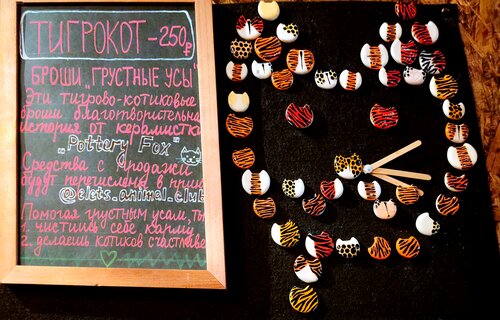 ТИГРОКОТ - 250р
БРОШИ "ГРУСТНЫЕ УСЫ"
Эти тигрово-котиковые
броши благотворительная
история от керамистки
"Pottery Fox"
Средства с продажи
будут перечислены в приют
@elets.animal.club
Помогая грустным усам, ты:
1. чистишь себе карму
2. делаешь котиков счастливее